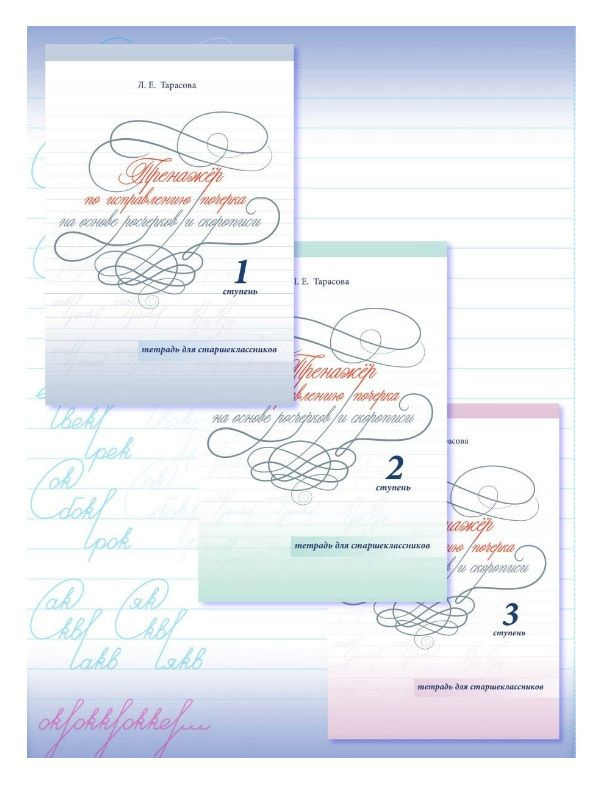 Л. Е. Тарасова
Тренажёр
по исправлению почерка
на основе росчерков и скорописи
1
ступень
тетрадь для старшеклассников
Е. Тарасова
Тренажёр
почерка
на основе росчерков и скорописи
2
ступень
тетрадь для старшеклассников
почерка
и скорописи
3
ступень
тетрадь для старшеклассников
век
рек
ок
бок
рок
ак як
кв кв
лакв лякв